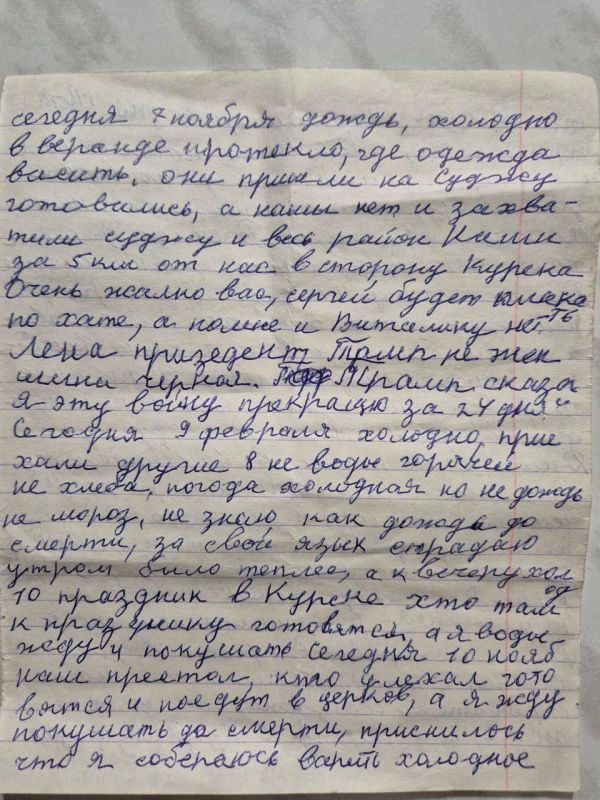 сегодня 7 ноября дождь, холодно
в веранде протекло, где одежда
висить, они пришли на суджу
готовились, а нашы нет и захва-
тили суджу и весь район Наши
за 5 км от нас в сторону Курска
Очень жалко вас, сергей будет плака
ть
по хате, а помне и Виталику нет.
Лена призедент Трамп не жен
шина черная. Трамп сказа
Я эту войну прекращю за 24 дня"
Сегодня 9 февраля холодно, прие
хали другие 8 не воды горячей
не хлеба, погода холодная но не дождь
не мороз, не знаю как дожда до
смерти, за свой язык страдаю
утром было теплее, а к вечеру хол
од
10 праздник в Курске хто там
к празднику готовятся, а я воды
жду и покушать Сегодня 10 нояб
наш престол, кто уехал гото
вятся и поедут в церков, а я жду
покушать до смерти, приснилось
что я собераюсь варить холодное